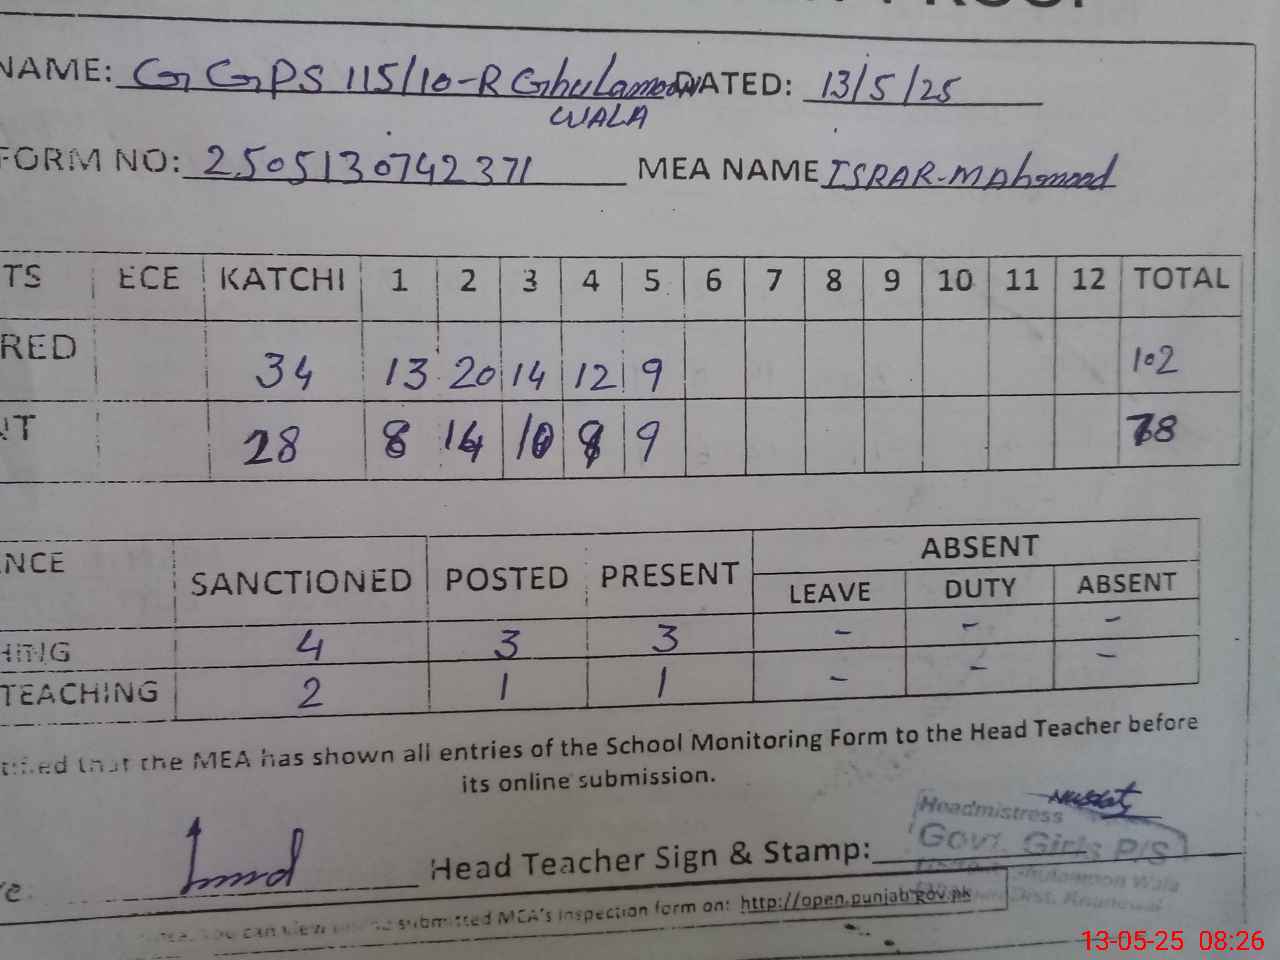 PROOF
NAME: GGPS 115/10-R Ghulamoon DATED: 13/5/25
WALA
FORM NO: 2505130742371 MEA NAME ISRAR-MAhmood
TS ECE KATCHI 1 2 3 4 5 6 7 8 9 10 11 12 TOTAL
RED 34 13 20 14 12 9 102
NT 28 8 14 10 9 9 78
NCE SANCTIONED POSTED PRESENT ABSENT
LEAVE DUTY ABSENT
HING 4 3 3 - - -
TEACHING 2 1 1 - - -
tified that the MEA has shown all entries of the School Monitoring Form to the Head Teacher before
its online submission.
Headmistress
Govt. Girls P/S
Head Teacher Sign & Stamp:
Wala
Dist. Khanewal
you can view submitted MEA's inspection form on: http://open.punjab.gov.pk
13-05-25 08:26